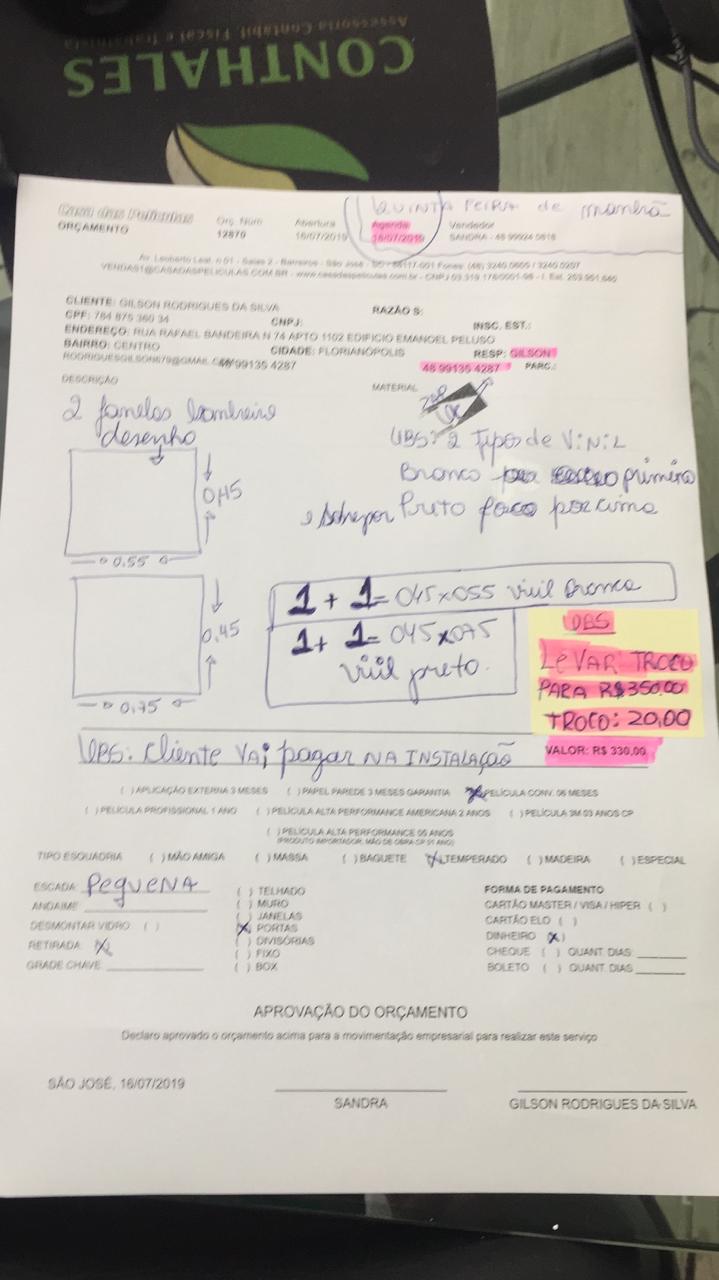 CONTHALES
Assessoria Contábil, Fiscal e Trabalhista
QUINTA FEIRA de manhã
Casa das Películas
ORÇAMENTO
Orç. Num
12870
Abertura
16/07/2019
Agenda
18/07/2019
Vendedor
SANDRA - 48 99924 0818
Av. Leoberto Leal, n 01 - Salas 2 - Barreiros - São José - SC - 88117-001 Fones: (48) 3240.0805 / 3240.0207
VENDAS1@CASADASPELICULAS.COM.BR - www.casadaspeliculas.com.br - CNPJ 03.319.178/0001-98 - I. Est. 253.951.640
CLIENTE: GILSON RODRIGUES DA SILVA
RAZÃO S:
CPF: 784 875 360 34
CNPJ:
INSC. EST.:
ENDEREÇO: RUA RAFAEL BANDEIRA N 74 APTO 1102 EDIFICIO EMANOEL PELUSO
BAIRRO: CENTRO
CIDADE: FLORIANÓPOLIS
RESP: GILSON
48 99135 4287
48 99135 4287
PARC.:
DESCRIÇÃO
MATERIAL
2 Janelas banheiro
desenho
OBS: 2 Tipos de ViNiL
Branco primeiro
Preto fosco por cima
0,45
0,55
0,45
0,75
1 + 1 = 045x055 vinil branco
1 + 1 = 045x075
vinil preto.
OBS
LEVAR TROCO
PARA R$350,00
TROCO: 20,00
OBS: Cliente VAi pagar NA INSTALAÇÃO
VALOR: R$ 330,00
( ) APLICAÇÃO EXTERNA 3 MESES ( ) PAPEL PAREDE 3 MESES GARANTIA (X) PELÍCULA CONV. 06 MESES
( ) PELÍCULA PROFISSIONAL 1 ANO ( ) PELÍCULA ALTA PERFORMANCE AMERICANA 2 ANOS ( ) PELÍCULA 3M 03 ANOS CP
( ) PELÍCULA ALTA PERFORMANCE 05 ANOS
(PRODUTO IMPORTADOR, MÃO DE OBRA CP 01 ANO)
TIPO ESQUADRIA ( ) MÃO AMIGA ( ) MASSA ( ) BAGUETE (X) TEMPERADO ( ) MADEIRA ( ) ESPECIAL
ESCADA: PEQUENA
ANDAIME:
DESMONTAR VIDRO ( )
RETIRADA: (X)
GRADE CHAVE:
( ) TELHADO
( ) MURO
( ) JANELAS
(X) PORTAS
( ) DIVISÓRIAS
( ) FIXO
( ) BOX
FORMA DE PAGAMENTO
CARTÃO MASTER / VISA / HIPER ( )
CARTÃO ELO ( )
DINHEIRO (X)
CHEQUE ( ) QUANT. DIAS:
BOLETO ( ) QUANT. DIAS
APROVAÇÃO DO ORÇAMENTO
Declaro aprovado o orçamento acima para a movimentação empresarial para realizar este serviço
SÃO JOSÉ, 16/07/2019
SANDRA
GILSON RODRIGUES DA SILVA